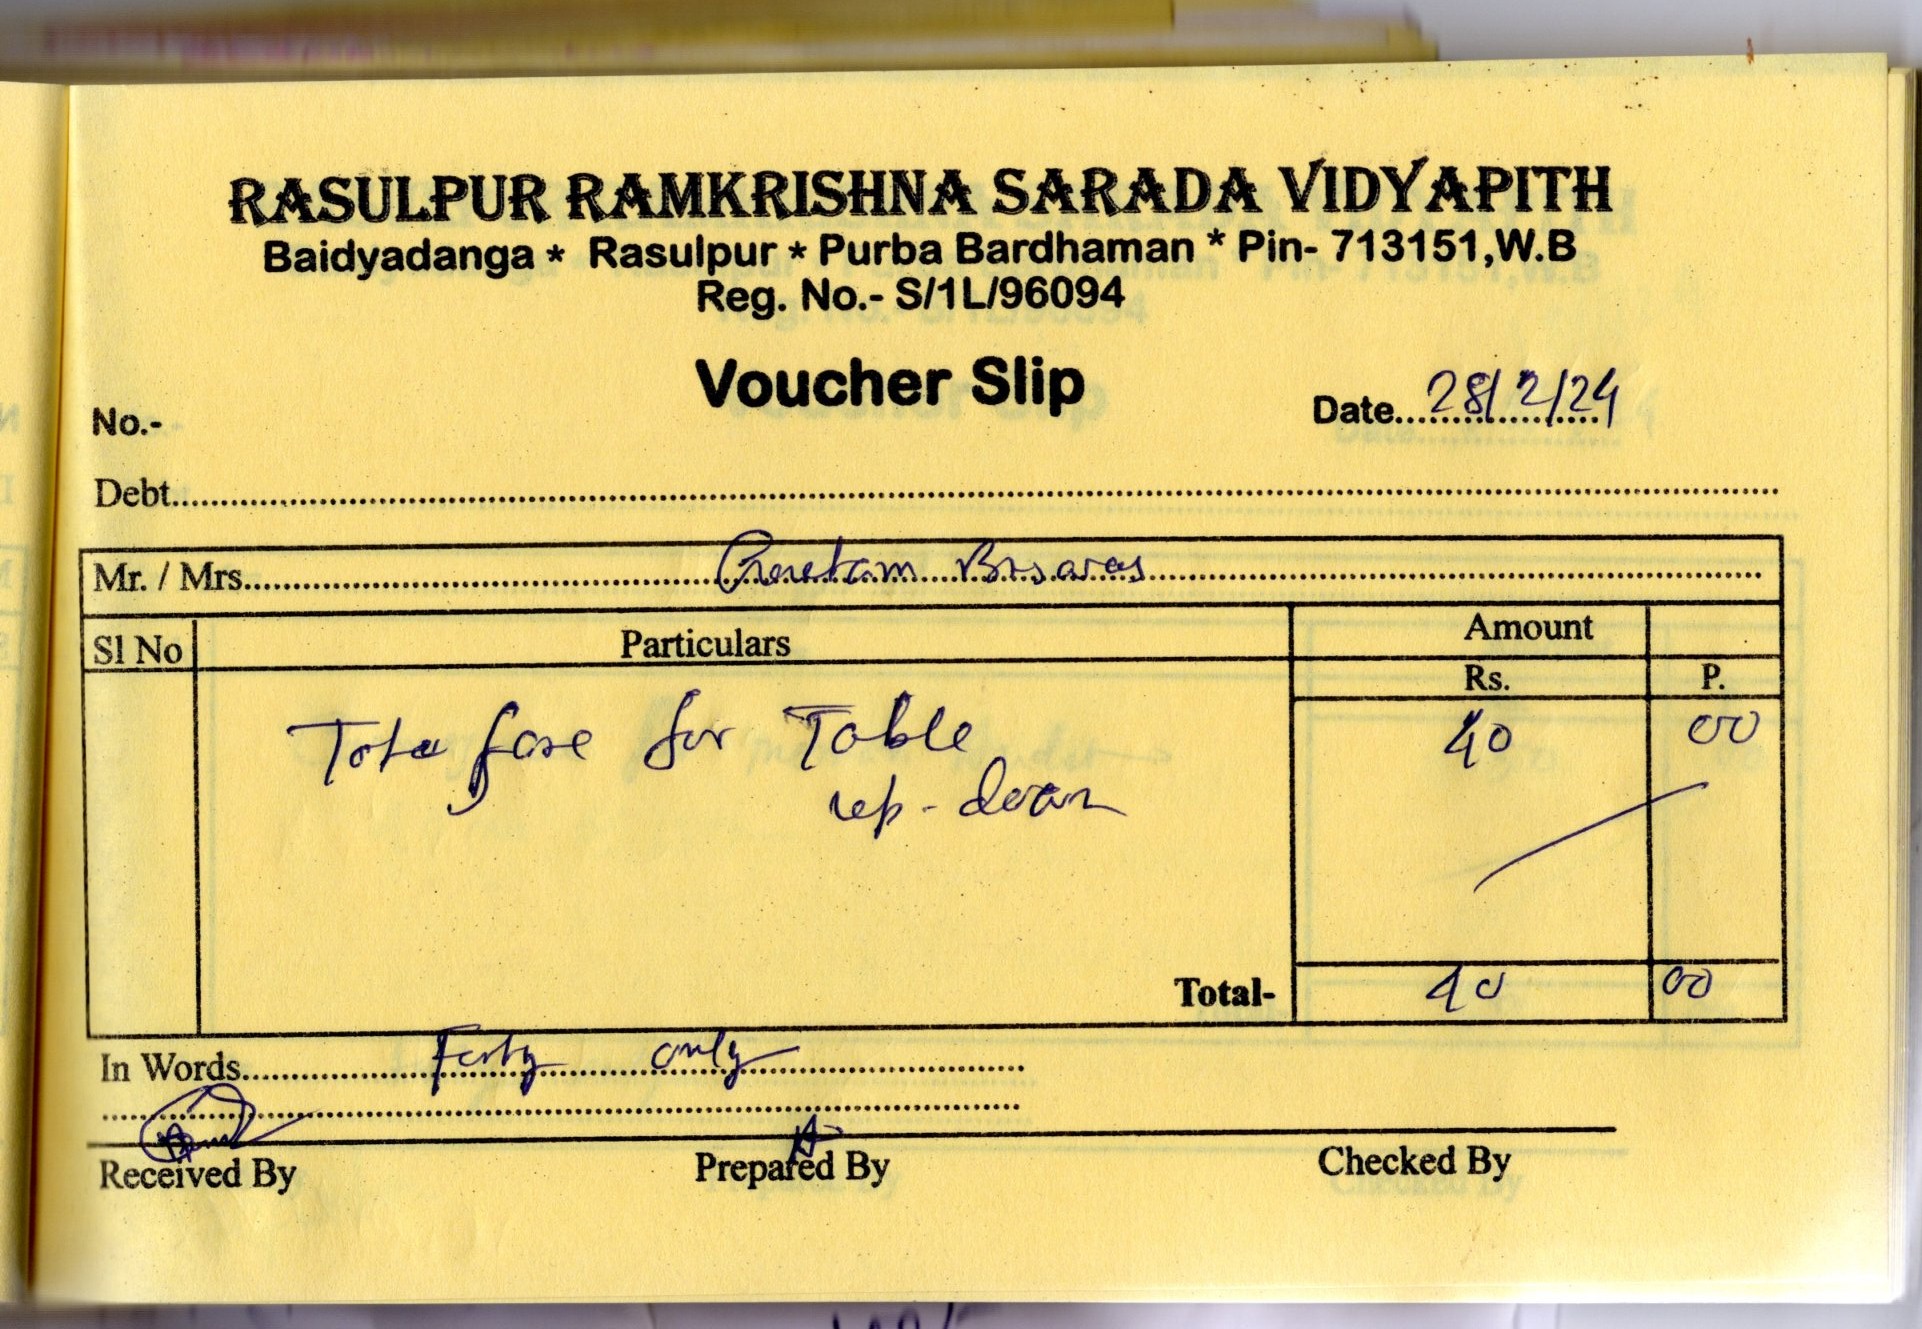 RASULPUR RAMKRISHNA SARADA VIDYAPITH
Baidyadanga * Rasulpur * Purba Bardhaman * Pin- 713151,W.B
Reg. No.- S/1L/96094
Voucher Slip
No.-
Date...28/2/24
Debt
Mr. / Mrs.
Sl No Particulars Amount
Rs. P.
fare for Table 40 00
up - down
Total- 40 00
In Words Forty only
Received By Prepared By Checked By